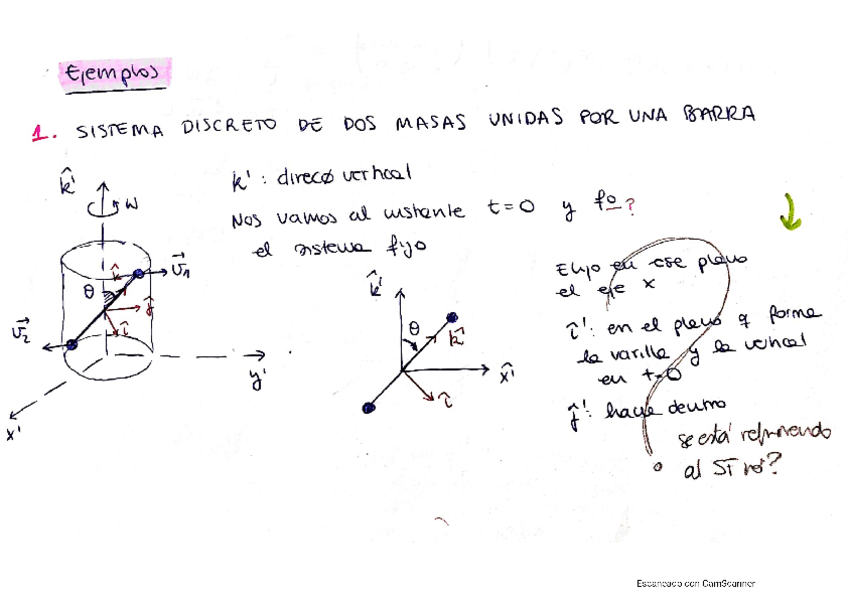 Ejemplos
1. SISTEMA DISCRETO DE DOS MASAS UNIDAS POR UNA BARRA
k̂' : direcø vertical
Nos vamos al instante t=0 y fo?
el sistema fijo
k̂'
w
v⃗₁
θ
k̂
ĵ
î
v⃗₂
y'
x'
k̂'
θ
k̂
x̂'
î
Elijo en ese plano
el eje x
î' : en el plano q forma
la varilla y la vertical
en t=0
ĵ' : hacia dentro
se está refiriendo
al SI no?
Escaneado con CamScanner